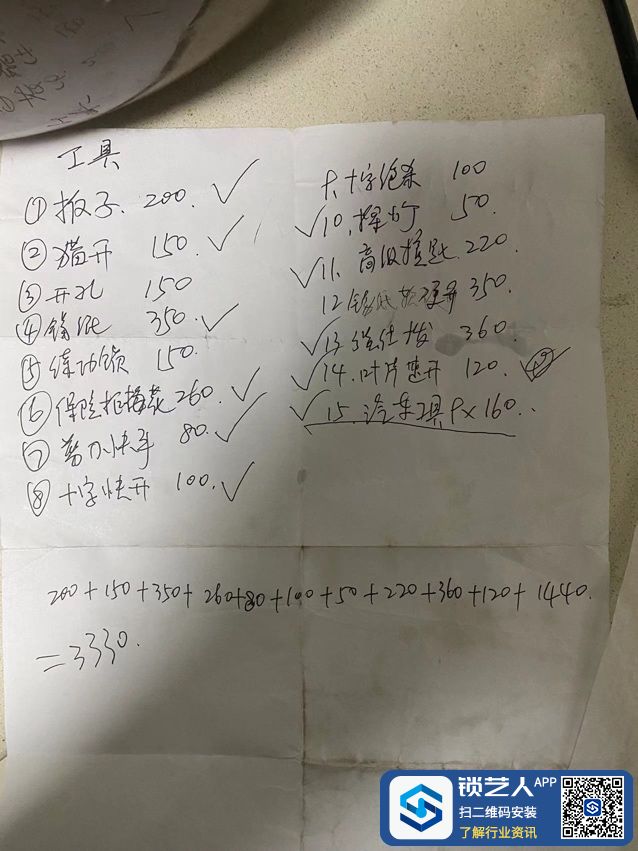 工具
① 扳子. 200. ✓
② 猫开 150. ✓
③ 开孔 150
④ 锡纸 350. ✓
⑤ 练功锁 150.
⑥ 保险柜梅花 260. ✓
⑦ 剪刀快手 80. ✓
⑧ 十字快开 100. ✓
十字绝杀 100
✓ 10. 50.
✓ 11. 高级 220.
12 锡纸软硬开 350.
✓ 13. 强仕拔 360.
✓ 14. 叶片速开 120.
✓ 15. 汽车工具 9×160.
200+150+350+260+80+100+50+220+360+120+1440.
=3330.
锁艺人APP
扫二维码安装
了解行业资讯